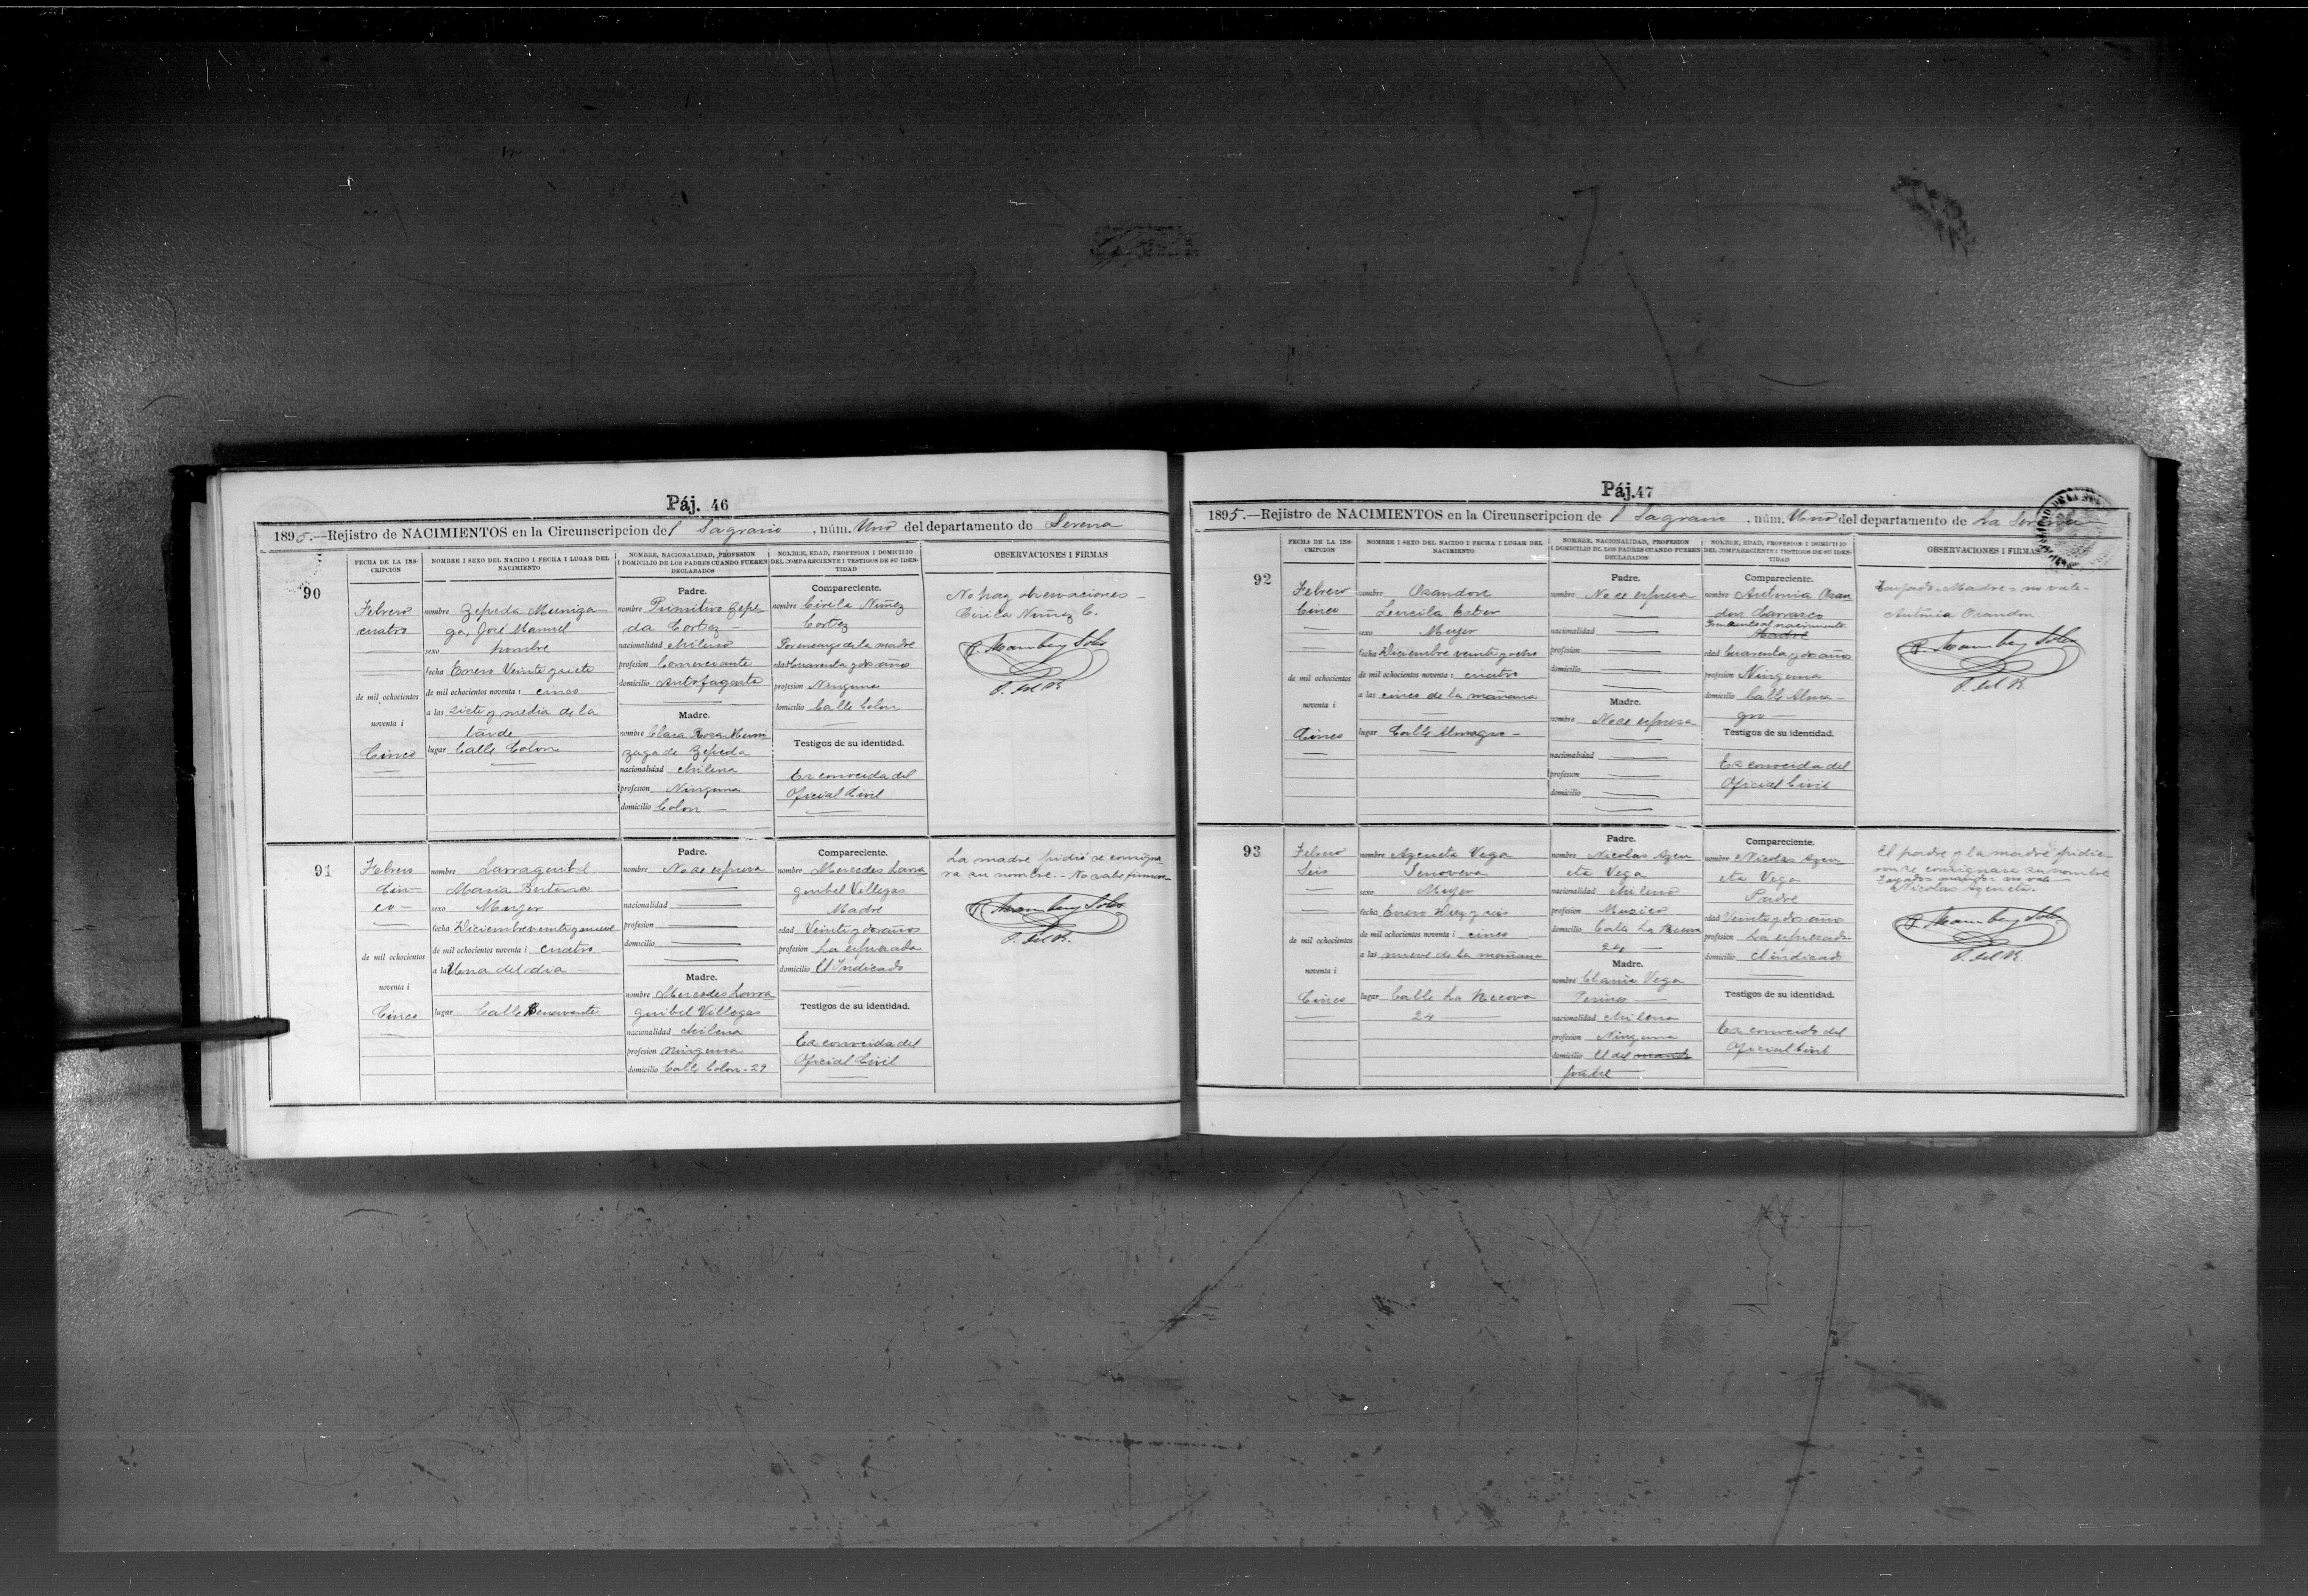 Páj. 46
1895.—Rejistro de NACIMIENTOS en la Circunscripcion del Sagrario, núm. Uno del departamento de Serena
FECHA DE LA INSCRIPCION
NOMBRE I SEXO DEL NACIDO I FECHA I LUGAR DEL NACIMIENTO
NOMBRE, NACIONALIDAD, PROFESION I DOMICILIO DE LOS PADRES CUANDO FUEREN DECLARADOS
NOMBRE, EDAD, PROFESION I DOMICILIO DEL COMPARECIENTE I TESTIGOS DE SU IDENTIDAD
OBSERVACIONES I FIRMAS
90
Febrero
cuatro
de mil ochocientos
noventa i
Cinco
nombre Zepeda Muniza
ga, José Manuel
sexo hombre
fecha Enero Veinte y siete
de mil ochocientos noventa i cinco
a las siete y media de la
tarde
lugar Calle Colon
Padre.
nombre Primitivo Zepe
da Cortez
nacionalidad chileno
profesion Comerciante
domicilio Antofagasta
Madre.
nombre Clara Rosa Muni
zaga de Zepeda
nacionalidad chilena
profesion Ninguna
domicilio Colon
Compareciente.
nombre Cirila Nuñez
Cortez
Por encargo de la madre
edad Cuarenta y dos años
profesion Ninguna
domicilio Calle Colon
Testigos de su identidad.
Es conocida del
Oficial Civil
No hay observaciones
Cirila Nuñez C.
O. del R.
91
Febrero
Cin
co
de mil ochocientos
noventa i
Cinco
nombre Larraguibel
Maria Bertina
sexo Mujer
fecha Diciembre veinte y nueve
de mil ochocientos noventa i cuatro
a la Una del dia
lugar Calle Benavente
Padre.
nombre No se espresa
nacionalidad
profesion
domicilio
Madre.
nombre Mercedes Larra
guibel Villegas
nacionalidad chilena
profesion Ninguna
domicilio Calle Colon - 29
Compareciente.
nombre Mercedes Larra
guibel Villegas
Madre
edad Veinte y dos años
profesion La espresada
domicilio El Indicado
Testigos de su identidad.
Es conocida del
Oficial Civil
La madre pidió se consigna
ra su nombre. - No sabe firmar
O. del R.
Páj. 47
1895.—Rejistro de NACIMIENTOS en la Circunscripcion del Sagrario, núm. Uno del departamento de La Serena
FECHA DE LA INSCRIPCION
NOMBRE I SEXO DEL NACIDO I FECHA I LUGAR DEL NACIMIENTO
NOMBRE, NACIONALIDAD, PROFESION I DOMICILIO DE LOS PADRES CUANDO FUEREN DECLARADOS
NOMBRE, EDAD, PROFESION I DOMICILIO DEL COMPARECIENTE I TESTIGOS DE SU IDENTIDAD
OBSERVACIONES I FIRMAS
92
Febrero
Cinco
de mil ochocientos
noventa i
Cinco
nombre Osandon
Lucila Ester
sexo Mujer
fecha Diciembre veinte y ocho
de mil ochocientos noventa i cuatro
a las cinco de la mañana
lugar Calle Almagro
Padre.
nombre No se espresa
nacionalidad
profesion
domicilio
Madre.
nombre No se espresa
nacionalidad
profesion
domicilio
Compareciente.
nombre Antonia Osan
don Carrasco
Presente al nacimiento
Madre
edad Cuarenta y dos años
profesion Ninguna
domicilio Calle Alma
gro
Testigos de su identidad.
Es conocida del
Oficial Civil
Tarjado - Madre - no vale -
Antonia Osandon
O. del R.
93
Febrero
Seis
de mil ochocientos
noventa i
Cinco
nombre Azeueta Vega
Jenoveva
sexo Mujer
fecha Enero Diez y seis
de mil ochocientos noventa i cinco
a las nueve de la mañana
lugar Calle La Recova
24
Padre.
nombre Nicolas Azeu
eta Vega
nacionalidad chileno
profesion Musico
domicilio Calle La Recova
24
Madre.
nombre Vega
nacionalidad chilena
profesion Ninguna
domicilio El del
padre
Compareciente.
nombre Nicolas Azeu
eta Vega
Padre
edad Veinte y dos años
profesion La espresada
domicilio El indicado
Testigos de su identidad.
Es conocido del
Oficial Civil
El padre y la madre pidie
ron se consignara su nombre
no vale
Nicolas Azeueta.
O. del R.